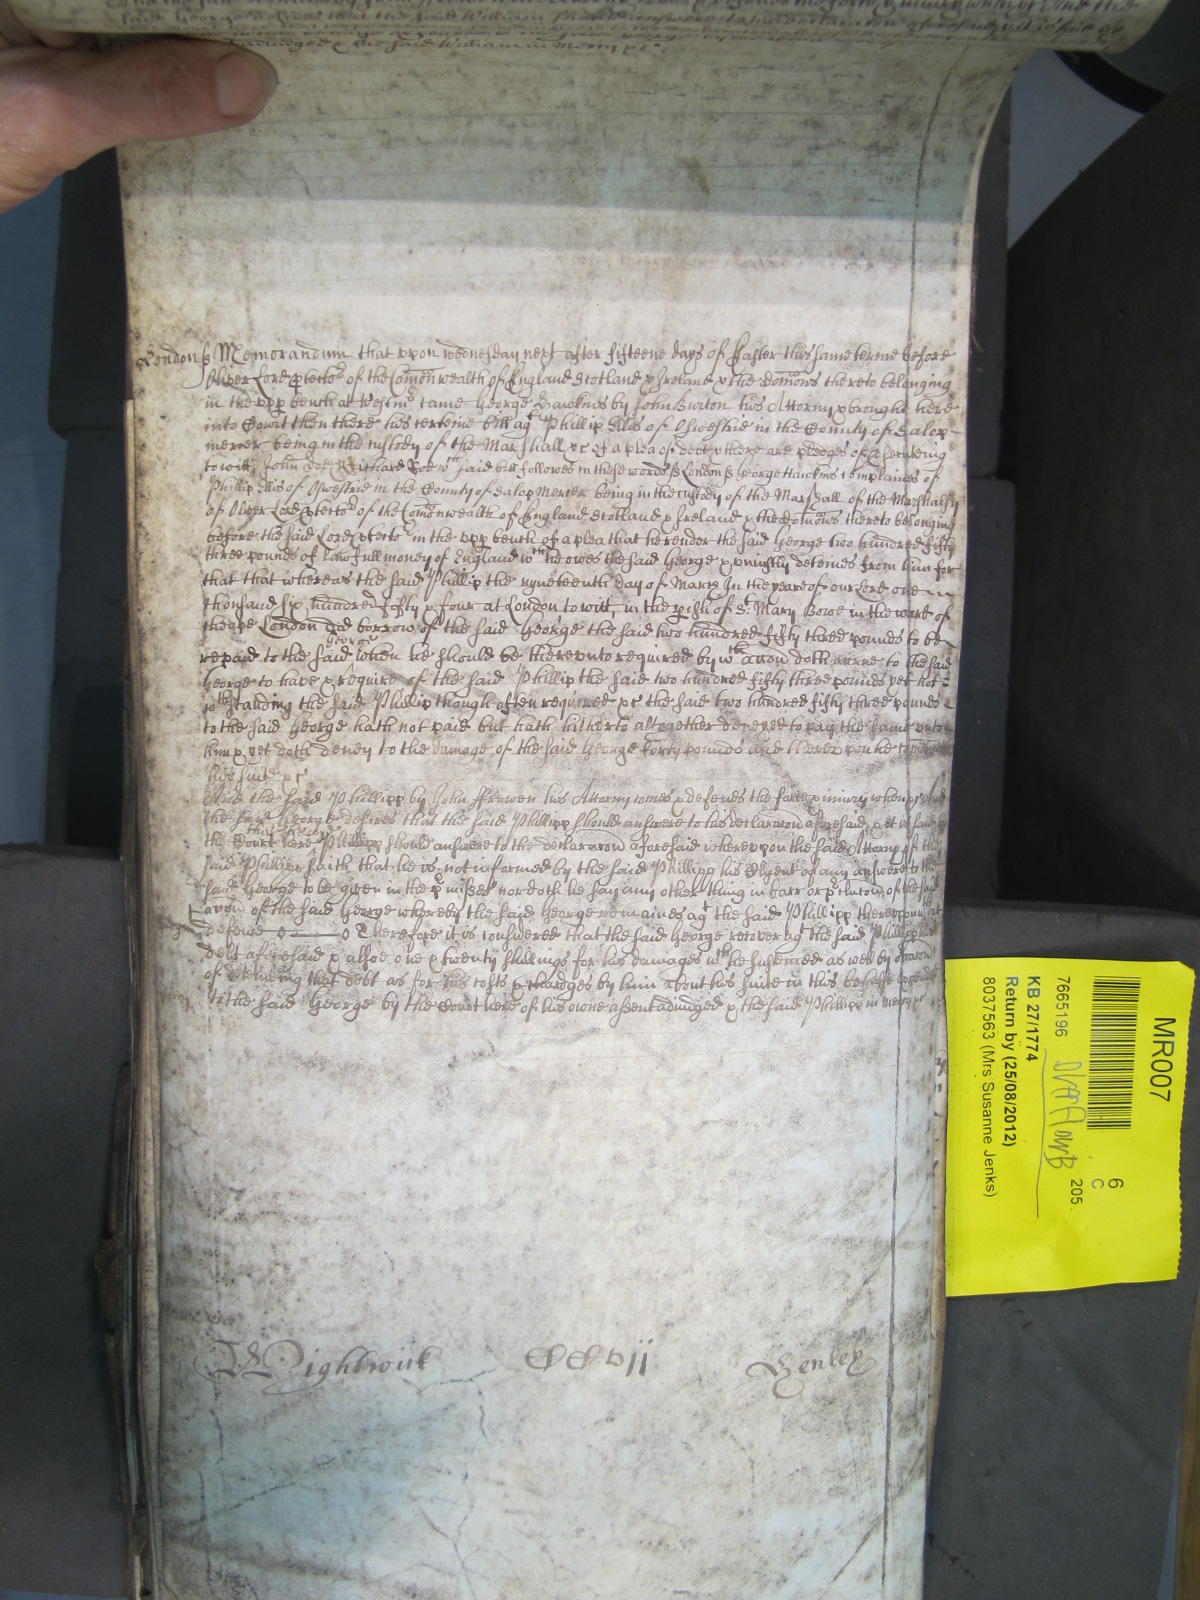 the said William in Mercy &c
London ss Memorandum that vpon wednesday next after fifteene days of Easter this same terme before
Oliver Lord Protector of the Comonwealth of England Scotland & Ireland & the Domions thereto belonging
in the vpp bench at Westmr came George Hawkins by John Burton his Attorny & brought here
into Court then there his certeine bill agt Phillip Ellis of Oswestrie in the County of Salop
mercer being in the custody of the Marshall &c of a plea of debt & there are pledges of
to witt John Doe & Richard Roe wch said bill followes in these words ss London ss George Hawkins complaines of
Phillip Ellis of Oswestrie in the County of Salop Mercer being in the custody of the Marshall of the Marshalsy
of Oliver Lord Protector of the Comonwealth of England Scotland & Ireland & the Domions thereto belonging
before the said Lord Protector in the vpp bench of a plea that he render the said George two hundred fifty
three pounds of lawfull money of England wch he owes the said George & vniustly deteines from him for
that that whereas the said Phillip the nyneteenth day of March In the yeare of our Lord one
thousand six hundred fifty & four at London to witt in the pish of St Mary Bowe in the ward of
Cheape London did borrow of the said George the said two hundred fifty three pounds to be
George
repaid to the said when he should be therevnto required by wch accon doth accrue to the said
George to have & require of the said Phillip the said two hundred fifty three pounds yet not
wthstanding the said Phillip though often required &c the said two hundred fifty three pounds
to the said George hath not paid but hath hitherto altogether denyed to pay the same vnto
him & yet doth deney to the damage of the said George forty pounds and therevpon he
his suite &c
And the said Phillipp by John Frewen his Attorny comes & defends the force & iniury when &c And
the said George desires that the said Phillipp should answere to his declaracon aforesaid & et is said by
the Court here Phillipp should answere to the declaracon aforesaid wherevpon the said Attorny of the
said Phillipp saith that he is not informed by the said Phillipp his Clyent of any answere to the
said George to be given in the pmisses nor doth he say any other thing in barr or pclusion of the said
accon of the said George whereby the said George remaines agt the said Phillipp therevpon wthout
defence Therefore it is considered that the said George recover agt the said Phillipp his
debt aforesaid & alsoe one & twenty shillings for his damages wch he susteined as well by occacon
of deteining that debt as for his costs & charges by him about his suite in this behalfe
to the said George by the Court here of his owne assent adiudged & the said Phillipp in mercy &c
Wightwick CCvii Henley
MR007
6
C
205
7665196
KB 27/1774
Return by (25/08/2012)
8037563 (Mrs Susanne Jenks)